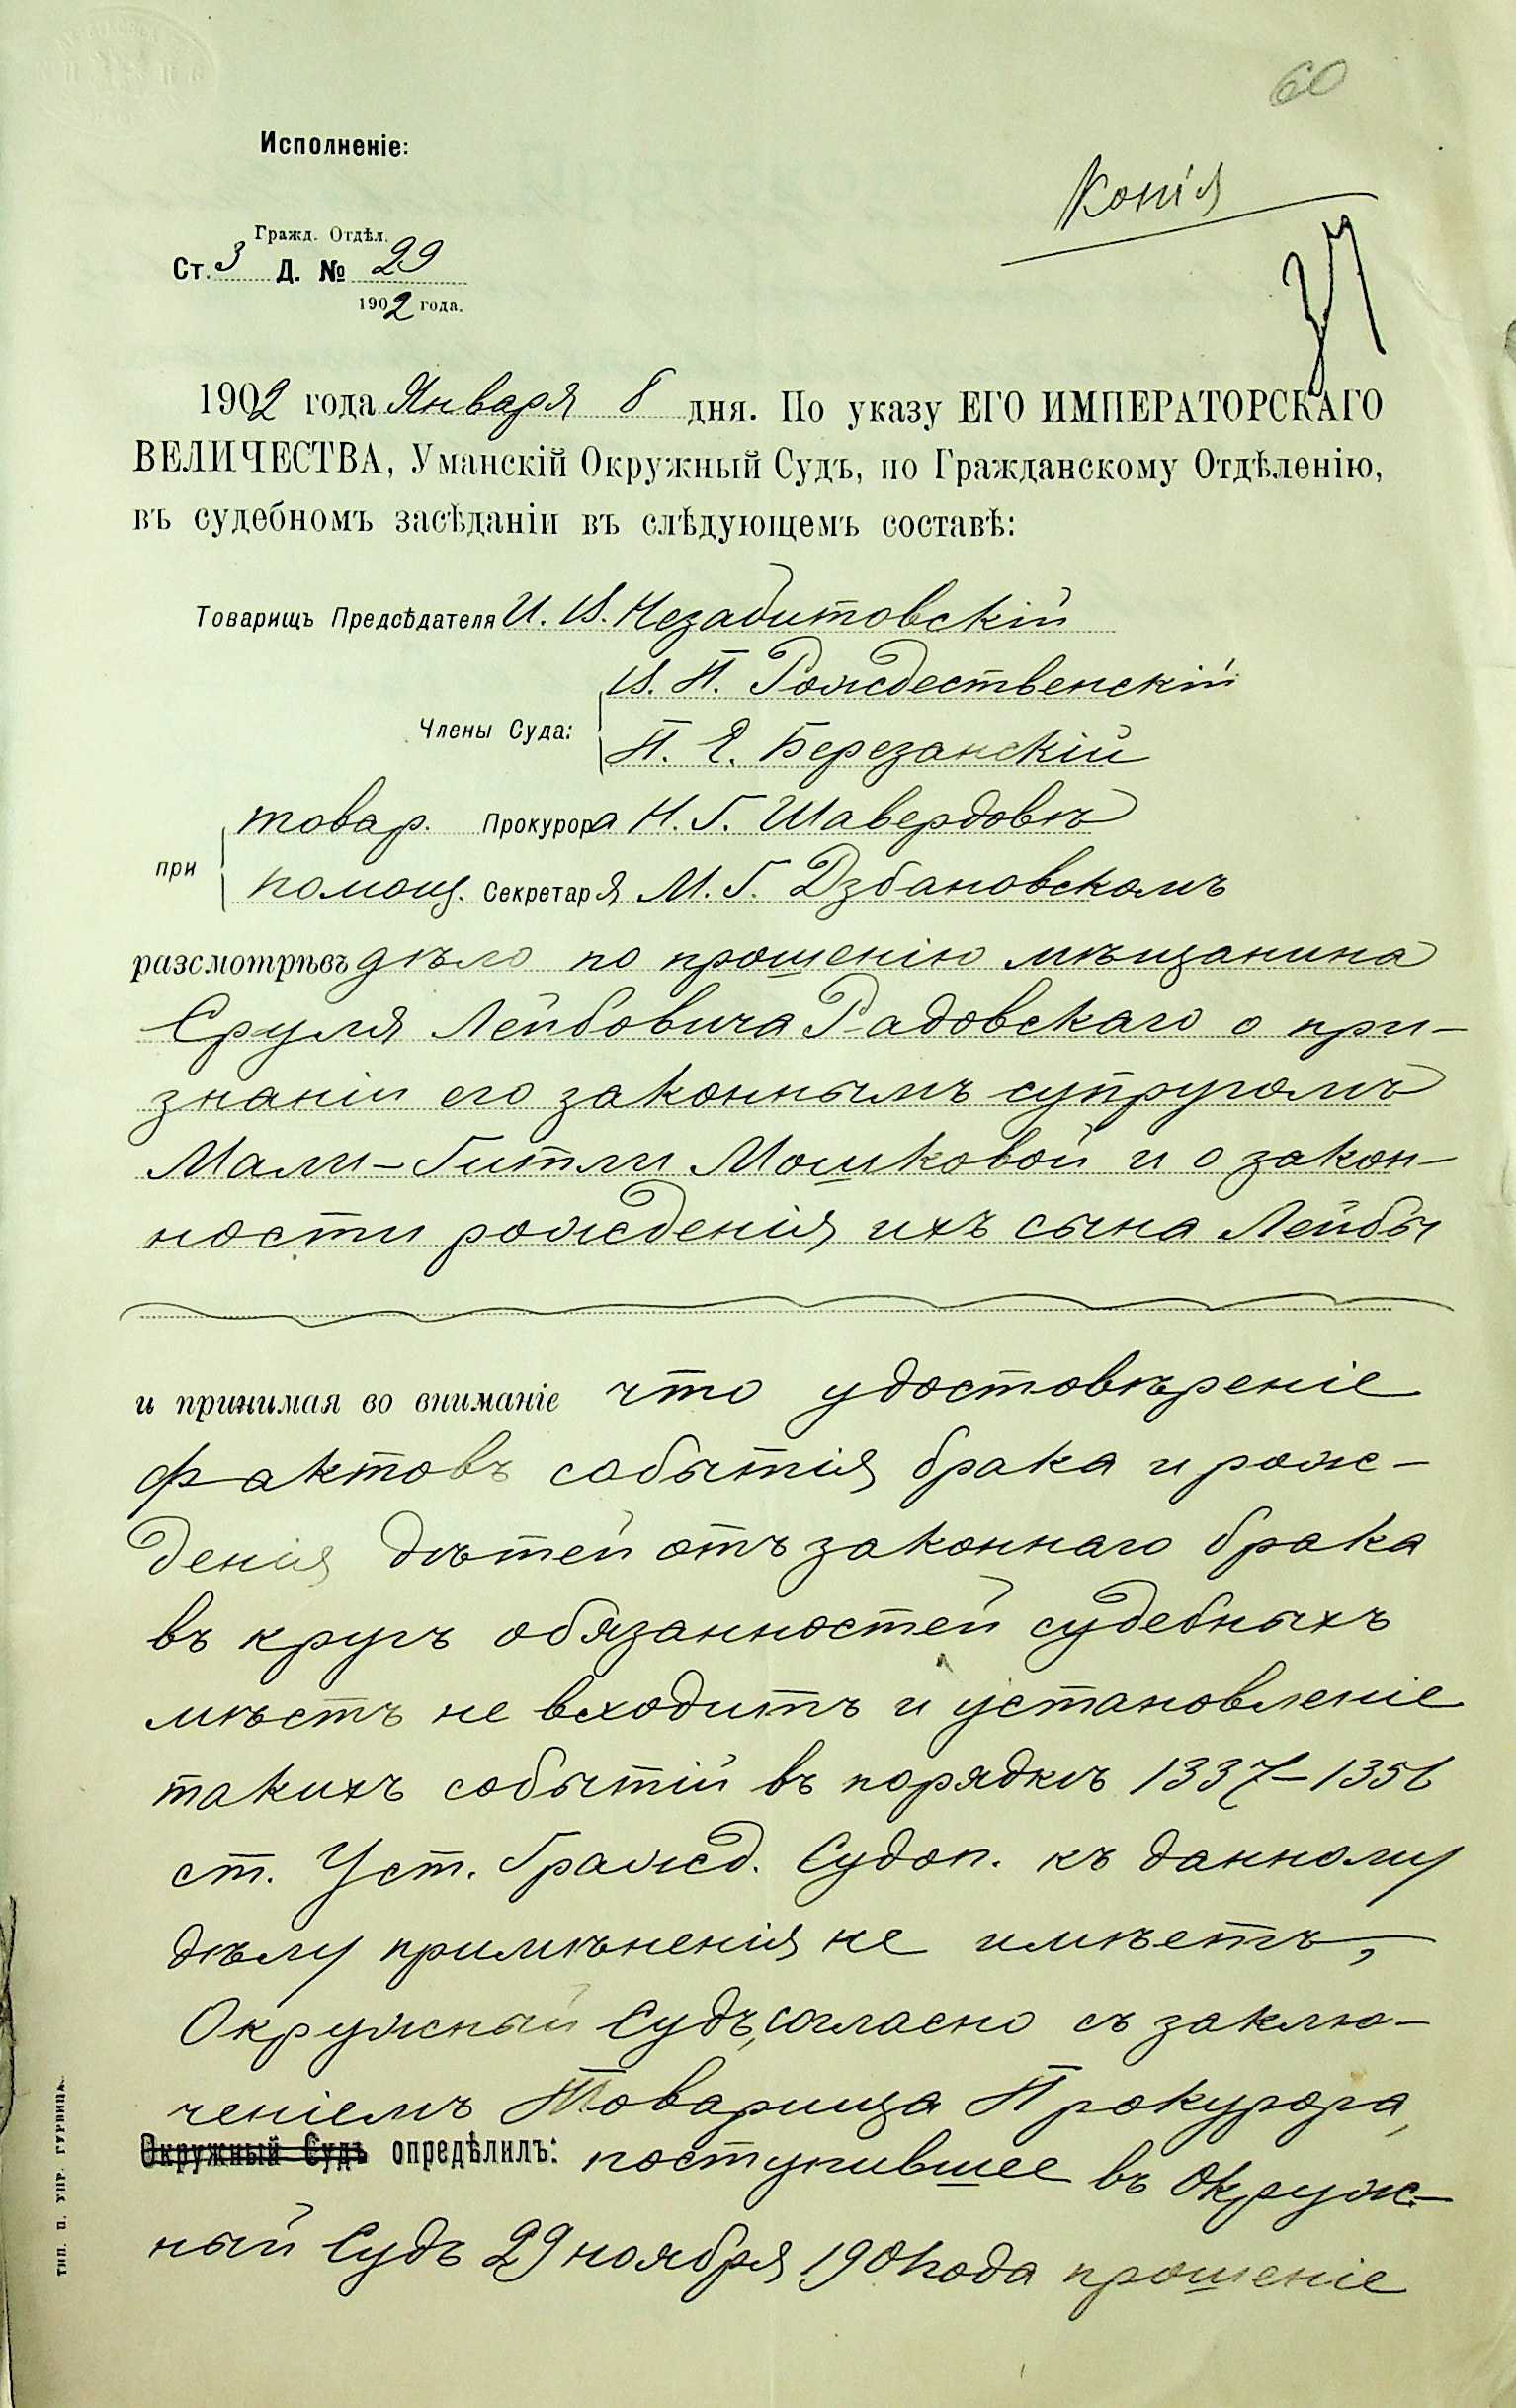 60
Исполненіе:
Копія
Гражд. Отдѣл.
Ст. 3 Д. № 29
1902 года.
1902 года Января 8 дня. По указу ЕГО ИМПЕРАТОРСКАГО
ВЕЛИЧЕСТВА, Уманскій Окружный Судъ, по Гражданскому Отдѣленію,
въ судебномъ засѣданіи въ слѣдующемъ составѣ:
Товарищъ Предсѣдателя И. И. Незабитовскій
И. П. Рождественскій
Члены Суда:
П. Е. Березанскій
товар. Прокурора Н. Г. Шавердовѣ
при
помощ. Секретаря М. Г. Дзбановскомъ
разсмотрѣвъ дѣло по прошенію мѣщанина
Сруля Лейбовича Радовскаго о при-
знаніи его законнымъ супругомъ
Мали-Гитли Мошковой и о закон-
ности рожденія ихъ сына Лейбы
и принимая во вниманіе что удостовѣреніе
фактовъ событія брака и рож-
денія дѣтей отъ законнаго брака
въ кругъ обязанностей судебныхъ
мѣстъ не входитъ и установленіе
такихъ событій въ порядкѣ 1337-1356
ст. Уст. Гражд. Судоп. къ данному
дѣлу примѣненія не имѣетъ,
Окружный Судъ, согласно съ заклю-
ченіемъ Товарища Прокурора,
Окружный Судъ опредѣлилъ: поступившее въ Окруж-
ный Судъ 29 ноября 1901 года прошеніе
ТИП. П. УПР. ГУРВИЦА.